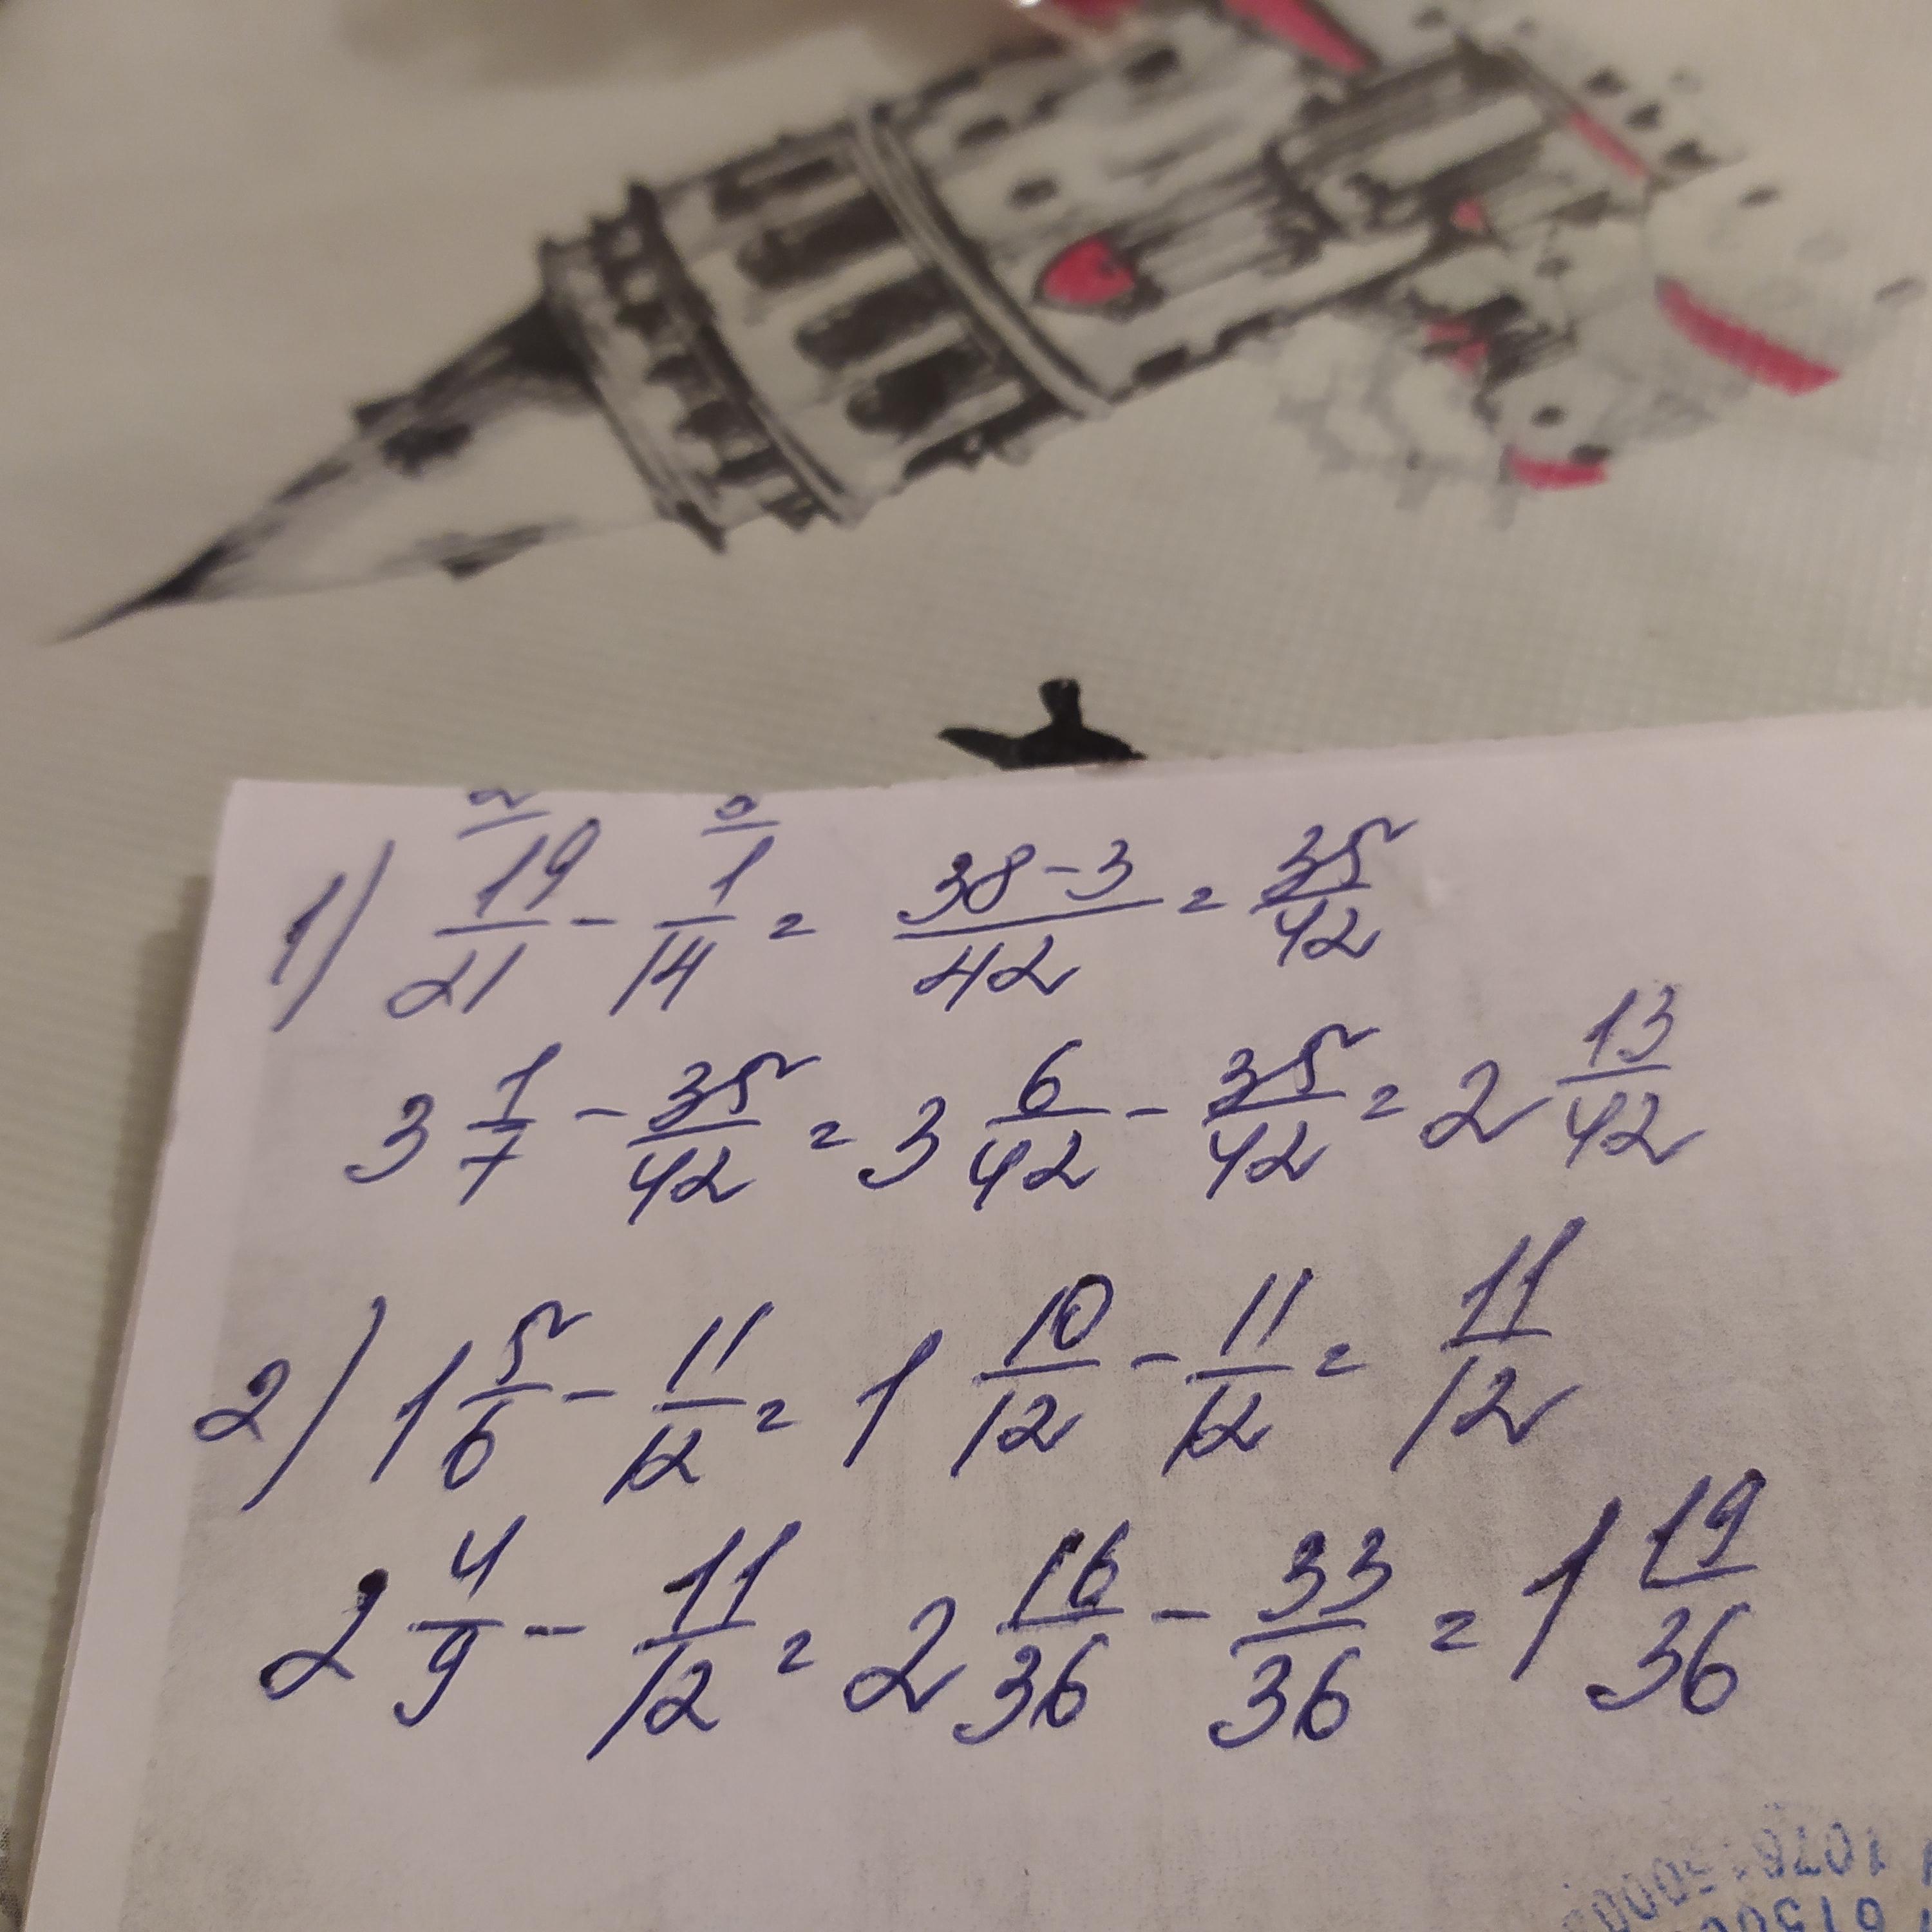 1) 19/21 - 1/14 = 38-3/42 = 35/42
3 1/7 - 35/42 = 3 6/42 - 35/42 = 2 13/42
2) 1 5/6 - 11/12 = 1 10/12 - 11/12 = 11/12
2 4/9 - 11/12 = 2 16/36 - 33/36 = 1 19/36